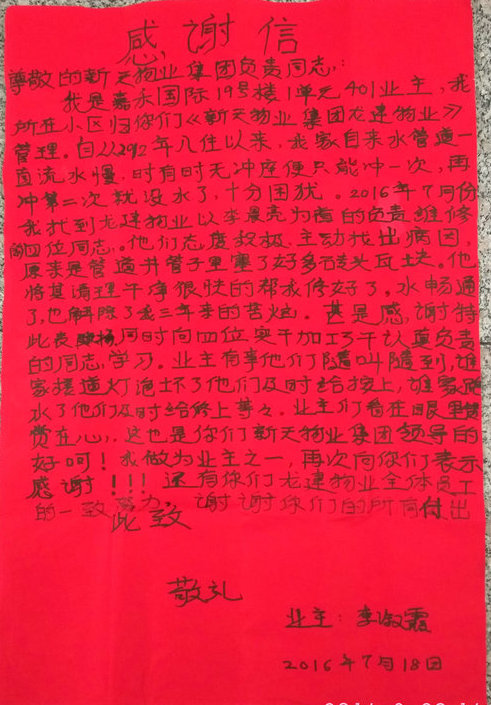 感谢信
尊敬的新天物业集团负责同志:
我是嘉禾国际19号楼1单元401业主,我
所在小区归你们《新天物业集团龙建物业》
管理。自从2012年入住以来,我家自来水管道一
直流水慢,时有时无冲座便只能冲一次,再
冲第二次就没水了,十分困扰。2016年7月份
我找到龙建物业以李景亮为首的负责维修
的四位同志。他们态度积极,主动找出病因,
原来是管道井管子里塞了好多砖头瓦块。他
将其清理干净很快的帮我修好了。水畅通
了,也解除了我三年来的苦恼。甚是感谢特
此表扬同时向四位实干加巧干认真负责
的同志学习。业主有事他们随叫随到,谁
家楼道灯泡坏了他们及时给按上,谁家跑
水了他们及时给修上等々。业主们看在眼里
赏在心,这也是你们新天物业集团领导的
好呵!我做为业主之一,再次向你们表示
感谢!!!还有你们龙建物业全体员工
的一致努力,谢谢你们的所有付出
此致
敬礼
业主:李淑霞
2016年7月18日